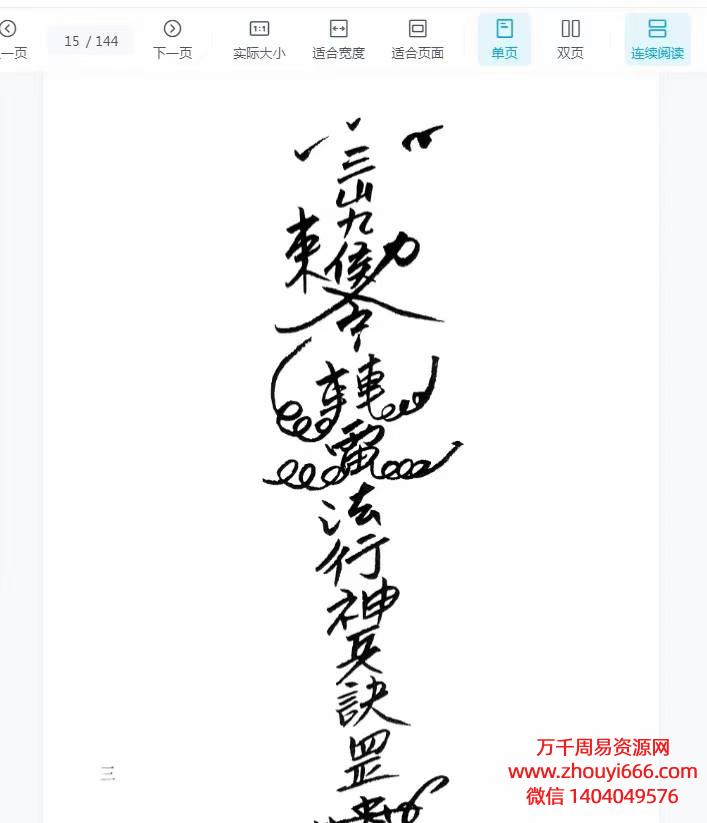 一页
15 / 144
下一页
1:1
实际大小
适合宽度
适合页面
单页
双页
连续阅读
三山九侯
勅令
雷
法行神兵訣罡
三
万千周易资源网
www.zhouyi666.com
微信 1404049576